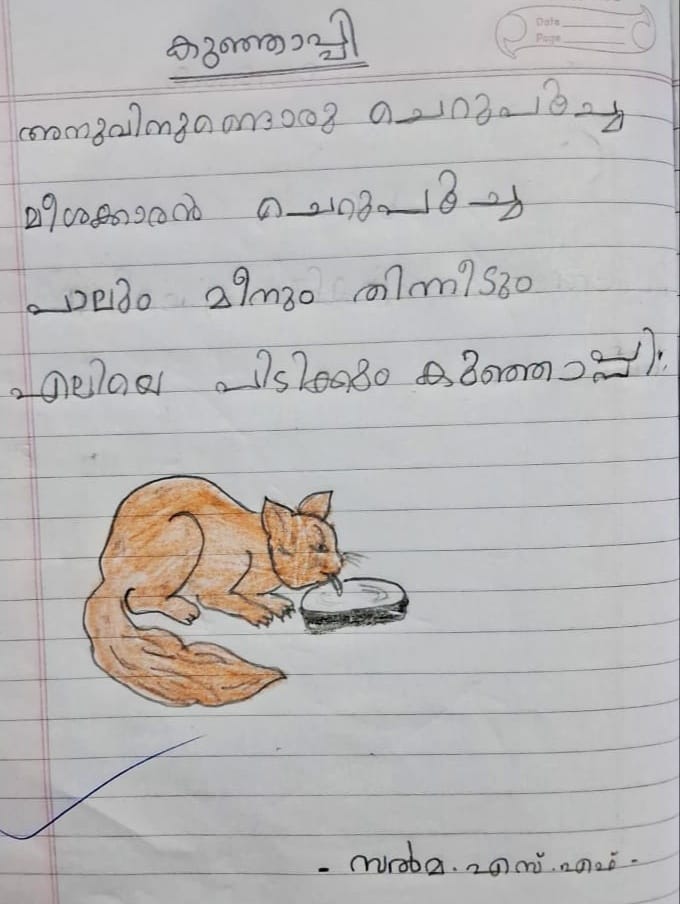 Date
Page
കുഞ്ഞാപ്പി
അനുവിനുണ്ടൊരു ചെറുപൂച്ച
മീശക്കാരൻ ചെറുപൂച്ച
പാലും മീനും തിന്നീടും
എലിയെ പിടിക്കും കുഞ്ഞാപ്പി.
- സൽമ. എസ്. എഫ് -